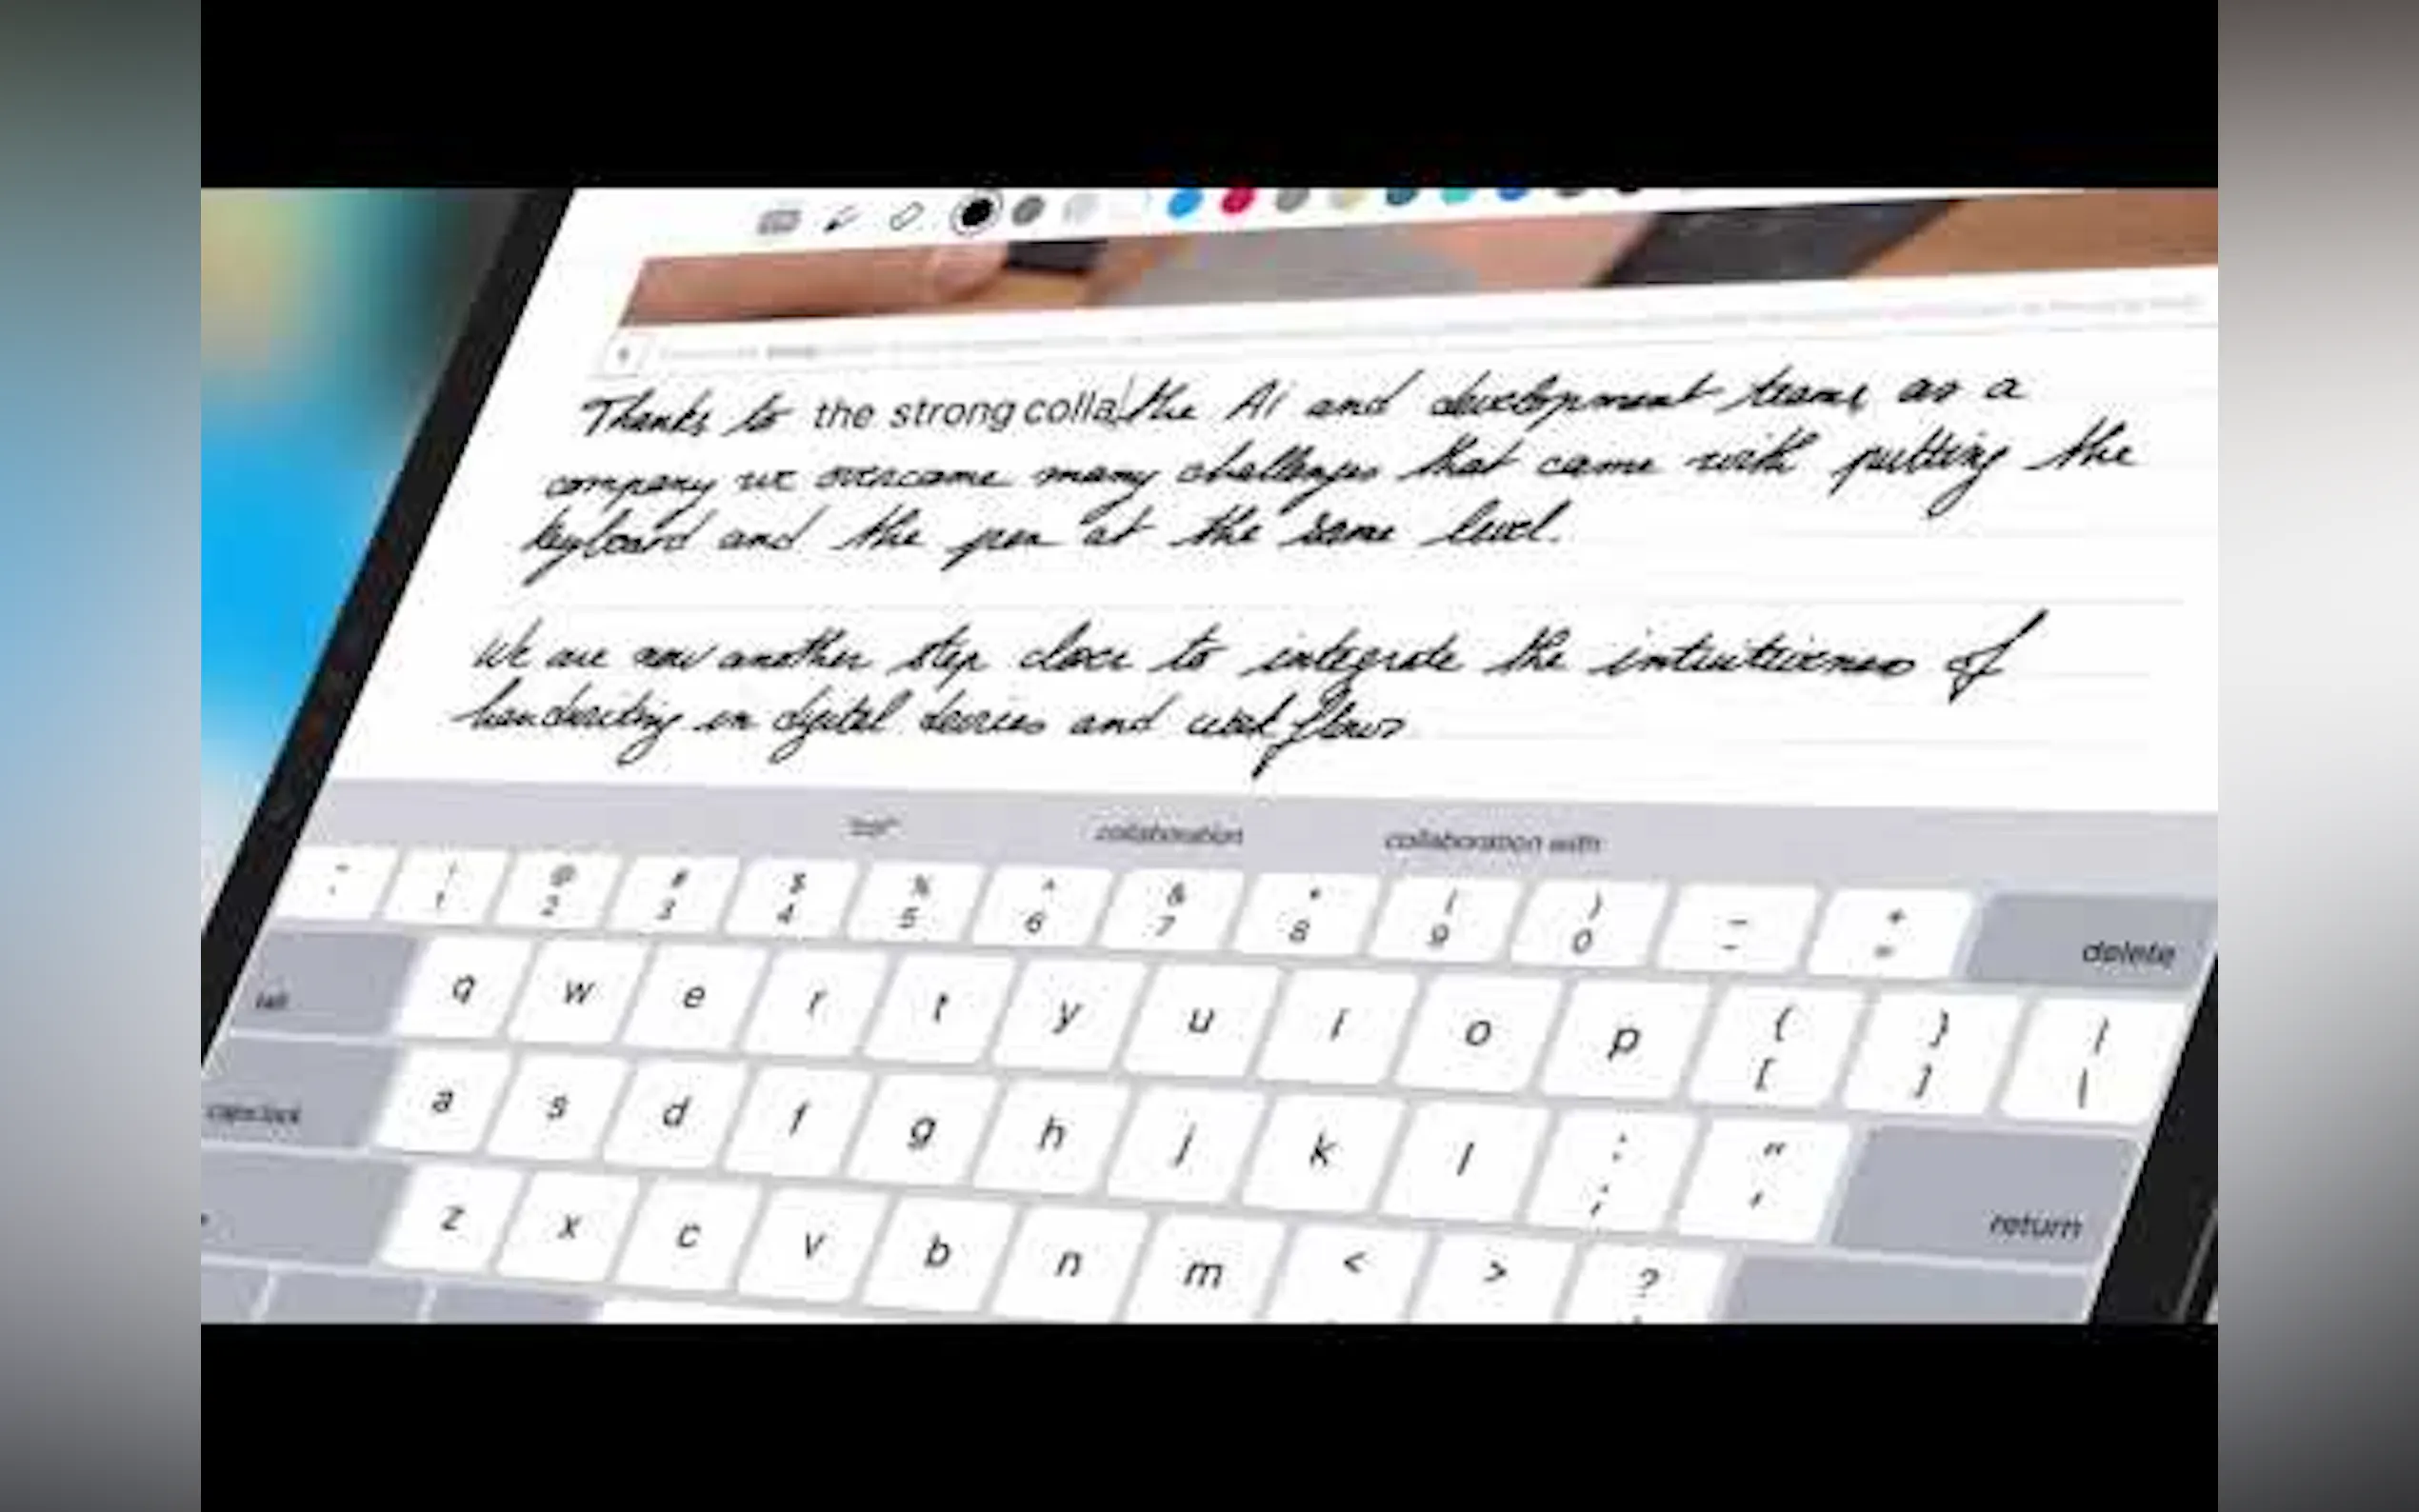 Thanks to the strong colla the Ai and development teams as a
company we overcame many challenges that came with putting the
keyboard and the pen at the same level.
We are now another step closer to integrate the intuitiveness of
handwriting in digital devices and workflows
collaboration collaboration with
~ ! @ # $ % ^ & * ( ) _ +
1 2 3 4 5 6 7 8 9 0 - = delete
tab q w e r t y u i o p { } |
[ ] \
caps lock a s d f g h j k l : "
; ' return
z x c v b n m < > ?